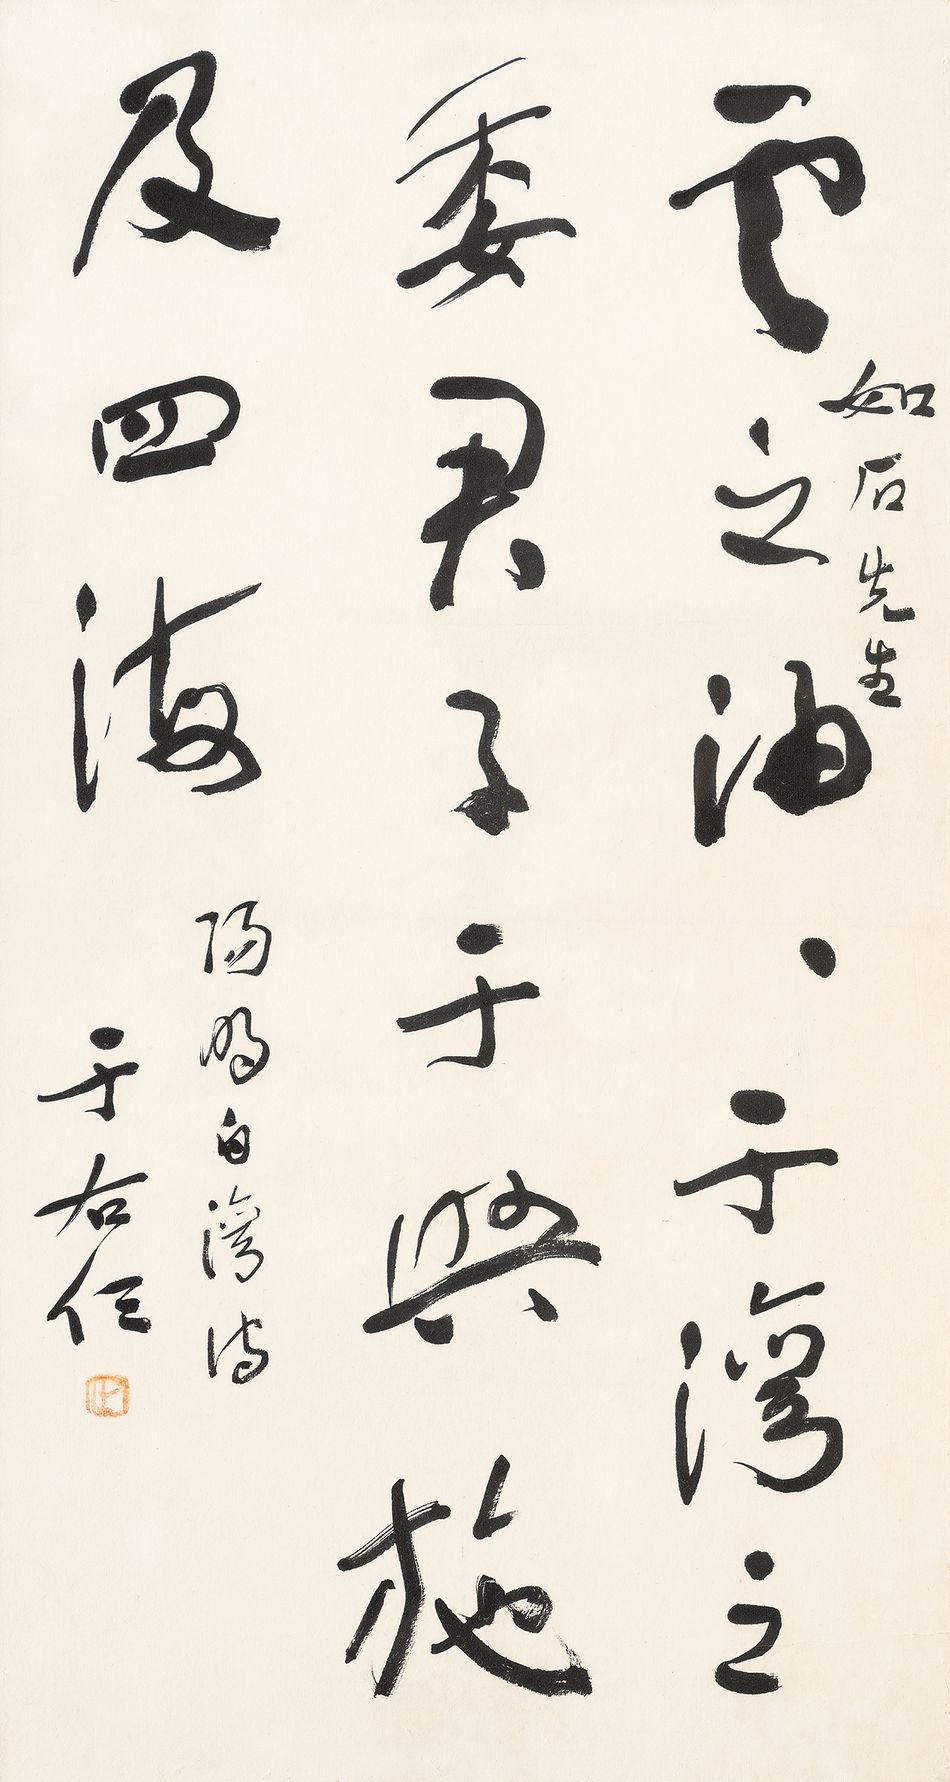 如石先生
雲之油、于灣之
委君子于興施
及四海
陽明白灣詩
于右任